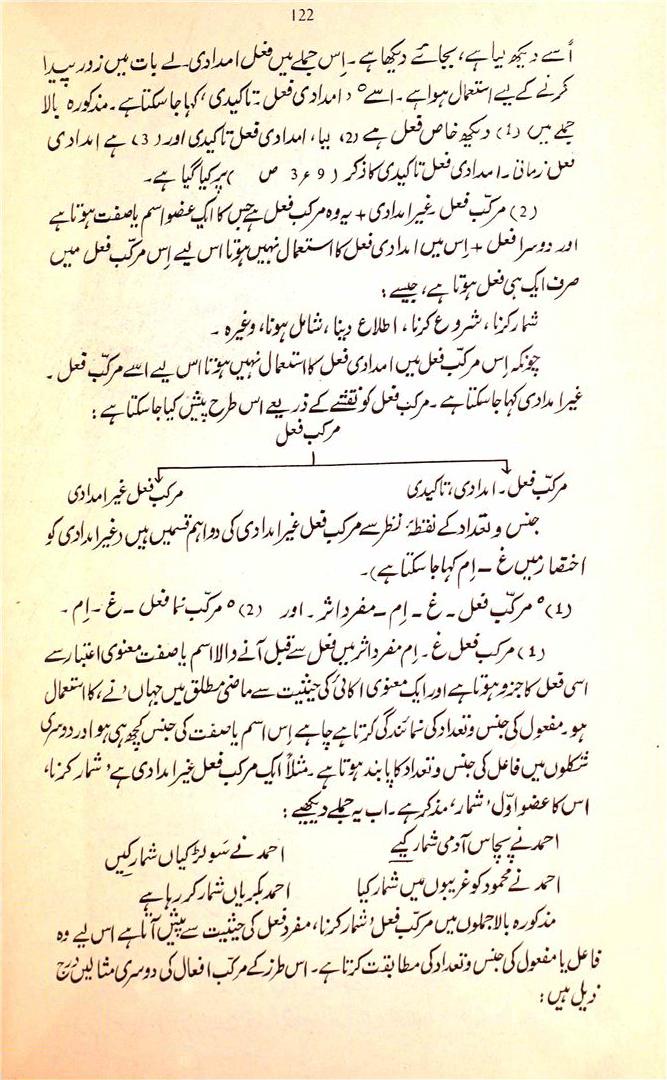 122
اُسے دیکھ لیا ہے، بجائے دیکھا ہے۔ اِس جملے میں فعل امدادی لے بات میں زور پیدا
کرنے کے لیے استعمال ہوا ہے۔ اسے ° امدادی فعل۔ تاکیدی، کہا جا سکتا ہے۔ مذکورہ بالا
جملے میں (1) دیکھ خاص فعل ہے (2)، لیا، امدادی فعل تاکیدی اور (3)، ہے امدادی
فعل زمانی۔ امدادی فعل تاکیدی کا ذکر (9 ء 3 ص ) پر کیا گیا ہے۔
(2) مرکّب فعل۔ غیر امدادی + یہ وہ مرکب فعل ہے جس کا ایک عضو اسم یا صفت ہوتا ہے
اور دوسرا فعل + اِس میں امدادی فعل کا استعمال نہیں ہوتا اس لیے اِس مرکّب فعل میں
صرف ایک ہی فعل ہوتا ہے، جیسے:
شمار کرنا، شروع کرنا، اطلاع دینا، شامل ہونا، وغیرہ۔
چونکہ اِس مرکّب فعل میں امدادی فعل کا استعمال نہیں ہوتا اس لیے اسے مرکّب فعل۔
غیر امدادی کہا جا سکتا ہے۔ مرکب فعل کو نقشے کے ذریعے اس طرح پیش کیا جا سکتا ہے:
مرکب فعل
مرکّب فعل۔ امدادی، تاکیدی مرکب فعل غیر امدادی
جنس و تعداد کے نقطۂ نظر سے مرکب فعل غیر امدادی کی دو اہم قسمیں ہیں (غیر امدادی کو
اختصار میں غ ۔ اِم کہا جا سکتا ہے)۔
(1) ° مرکّب فعل ۔ غ ۔ اِم ۔ مفرد اثر۔ اور (2) ° مرکّب نما فعل ۔ غ ۔ اِم ۔
(1) مرکب فعل غ ۔ اِم مفرد اثر میں فعل سے قبل آنے والا اسم یا صفت معنوی اعتبار سے
اسی فعل کا جزو ہوتا ہے اور ایک معنوی اکائی کی حیثیت سے ماضی مطلق میں جہاں، نے، کا استعمال
ہو۔ مفعول کی جنس و تعداد کی نمائندگی کرتا ہے چاہے اِس اسم یا صفت کی جنس کچھ ہی ہو اور دوسری
شکلوں میں فاعل کی جنس و تعداد کا پابند ہوتا ہے۔ مثلاً ایک مرکب فعل غیر امدادی ہے، شمار کرنا،
اس کا عضو اوّل، شمار، مذکر ہے۔ اب یہ جملے دیکھیے:
احمد نے پچاس آدمی شمار کیے احمد نے سَو لڑکیاں شمار کیں
احمد نے محمود کو غریبوں میں شمار کیا احمد بکریاں شمار کر رہا ہے
مذکورہ بالا جملوں میں مرکّب فعل، شمار کرنا، مفرد فعل کی حیثیت سے پیش آتا ہے اس لیے وہ
فاعل یا مفعول کی جنس و تعداد کی مطابقت کرتا ہے۔ اس طرز کے مرکّب افعال کی دوسری مثالیں درج
ذیل ہیں: